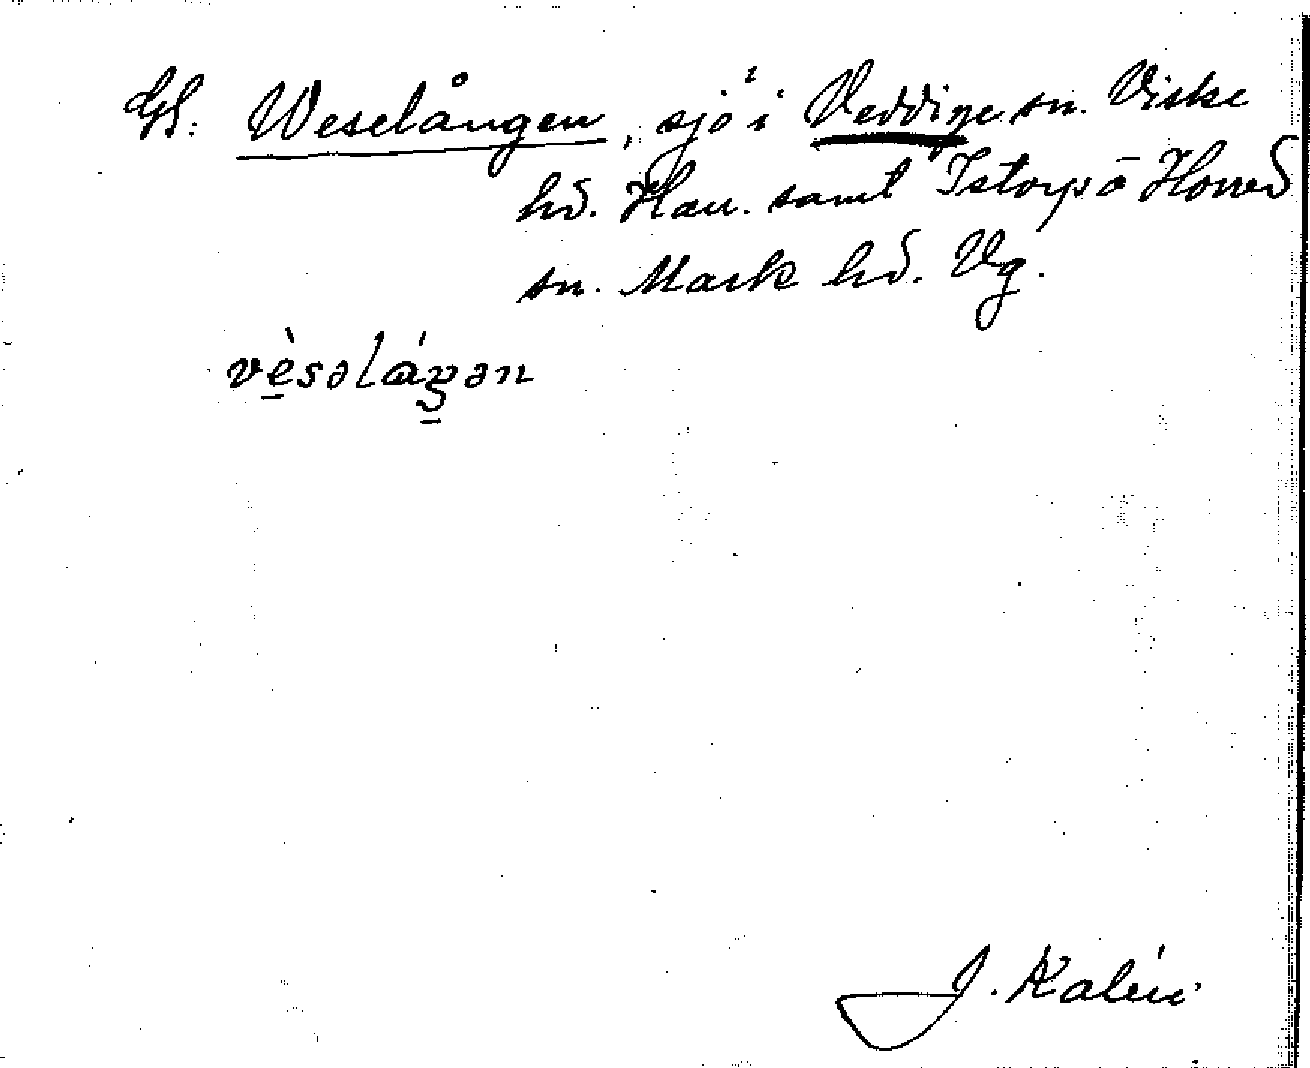 Gs. Weselången, sjö i Veddige sn. Viske
hd. Hall. samt Istorp o Horred
sn. Mark hd. Vg.
vèsəláŋən
J. Kalén